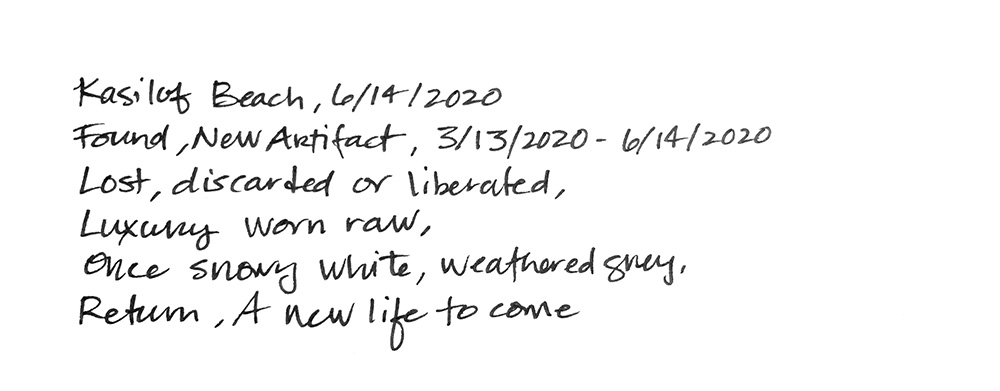 Kasilof Beach, 6/14/2020
Found, New Artifact, 3/13/2020 - 6/14/2020
Lost, discarded or liberated,
Luxury worn raw,
Once snowy white, weathered grey.
Return, A new life to come